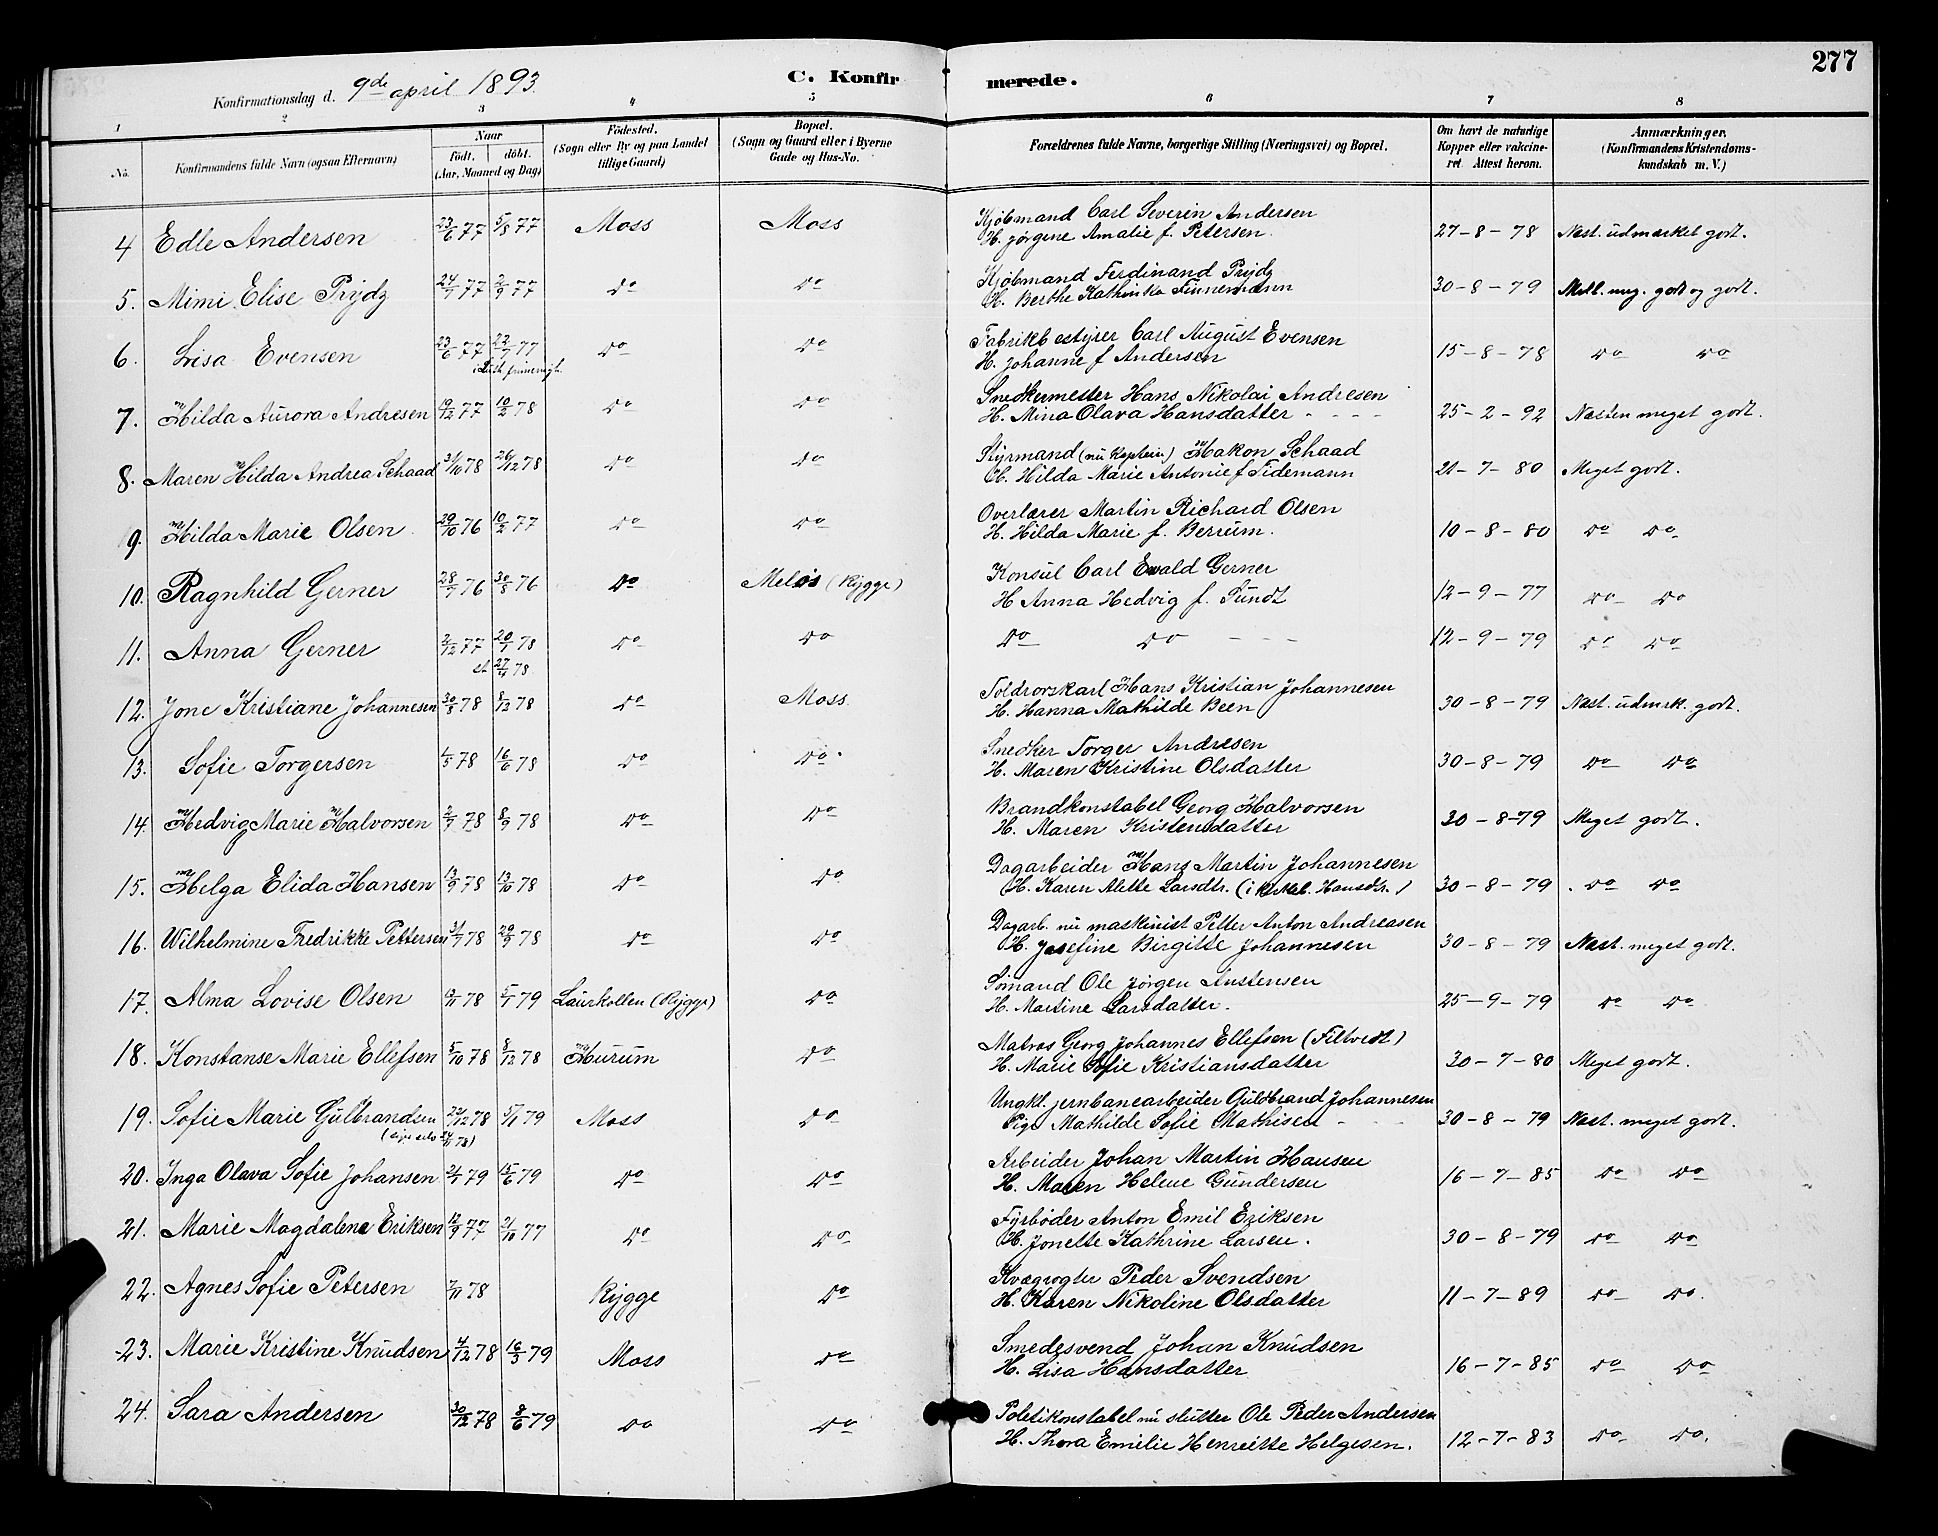 277
C. Konfirmerede.
Konfirmationsdag d. 9de april 1893.
1 2 3 4 5 6 7 8
No. Konfirmandens fulde Navn (ogsaa Efternavn) Naar født. døbt. (Aar, Maaned og Dag) Fødested. (Sogn eller By og paa Landet tillige Gaard) Bopæl. (Sogn og Gaard eller i Byerne Gade og Hus-No. Forældrenes fulde Navne, borgerlige Stilling (Næringsvei) og Bopæl. Om havt de naturlige Kopper eller vakcineret. Attest herom. Anmærkninger. (Konfirmandens Kristendomskundskab m. V.)
4 Edle Andersen 23/6 77 5/8 77 Moss Moss Kjøbmand Carl Severin Andersen 27-8-78 Næst. udmærket godt.
H. Jørgene Amalie f. Petersen.
5. Mimi Elise Prydz 24/7 77 2/9 77 Do Do Kjøbmand Ferdinand Prydz 30-8-79 Mell. meg. godt og godt.
H. Berthe Kathinka Finnemann
6. Lisa Evensen 23/6 77 22/7 77 Do Do Fabrikbestyrer Carl August Evensen 15-8-78 Do Do
H. Johanne f Andersen
7. Hilda Aurora Andresen 19/12 77 10/2 78 Do Do Snedkermester Hans Nikolai Andresen 25-2-92 Næsten meget godt.
H. Mina Olava Hansdatter
8. Maren Hilda Andrea Schaad 31/10 78 26/12 78 Do Do Styrmand (nu Kaptein) Hakon Schaad 21-7-80 Meget godt.
H. Hilda Marie Antonie f Tidemann
9. Hilda Marie Olsen 29/10 76 10/2 77 Do Do Overlærer Martin Richard Olsen 10-8-80 Do Do
H. Hilda Marie f. Berrum.
10. Ragnhild Gerner 28/7 76 30/8 76 Do Meløs (Rygge) Konsul Carl Ewald Gerner 12-9-77 Do Do
H Anna Hedvig f. Sundt
11. Anna Gerner 2/12 77 20/1 78 Do Do Do Do 12-9-79 Do Do
et 27/4 78
12. Jone Kristiane Johannesen 30/8 78 8/12 78 Do Moss Toldrorskarl Hans Kristian Johannesen 30-8-79 Næst. udmærk. godt.
H. Hanna Mathilde Been
13. Sofie Torgersen 1/5 78 16/6 78 Do Do Snedker Torger Andresen 30-8-79 Do Do
H. Maren Kristine Olsdatter
14. Hedvig Marie Halvorsen 2/7 78 8/9 78 Do Do Brandkonstabel Georg Halvorsen 30-8-79 Meget godt.
H. Maren Kristensdatter
15. Helga Elida Hansen 13/9 78 13/10 78 Do Do Dagarbeider Hans Martin Johannesen 30-8-79 Do Do
H. Karen Alette Larsdtr. Hansdtr.)
16. Wilhelmine Fredrikke Pettersen 31/7 78 29/9 78 Do Do Dagarb. nu maskinist Petter Anton Andreasen 30-8-79 Næst. meget godt.
H. Josefine Birgitte Johannesen
17. Alma Lovise Olsen 78 5/1 79 Laurkollen (Rygge) Do Sømand Ole Jørgen Austensen 25-9-79 Do Do
H. Martine Larsdatter.
18. Konstanse Marie Ellefsen 5/10 78 8/12 78 Hurum Do Matros Georg Johannes Ellefsen (Filtvedt) 30-7-80 Meget godt.
H. Marie Sofie Kristiansdatter
19. Sofie Marie Gulbrandsen 12 78 79 Moss Do Ungkl. jernbanearbeider Guldbrand Johannesen 30-8-79 Næst. meget godt.
Pige Mathilde Sofie Mathisen
20. Inga Olava Sofie Johansen 21/1 79 15/6 79 Do Do Arbeider Johan Martin Hansen 16-7-85 Do Do
H. Maren Helene Gundersen
21. Marie Magdalene Eriksen 12/9 77 21/10 77 Do Do Fyrbøder Anton Emil Eriksen 30-8-79 Do Do
H. Jonette Kathrine Larsen.
22. Agnes Sofie Petersen 7/11 78 Rygge Do Kvægrøgter Peder Svendsen 11-7-89 Do Do.
H. Karen Nikoline Olsdatter
23. Marie Kristine Knudsen 4/12 78 16/3 79 Moss Do Smedesvend Johan Knudsen 16-7-85 Do Do
H. Lisa Hansdatter
24. Sara Andersen 30/12 78 8/6 79 Do Do Politikonstabel nu slutter Ole Peder Andersen 12-7-83 Do Do.
H. Thora Emilie Henriette Helgesen.